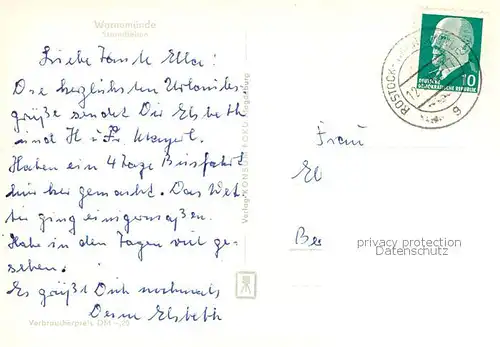 Warnemünde
Strandleben
Liebe Tante Ella!
Die herzlichsten Urlaubs-
grüße sendet Dir Elsbeth
und H u Fr.
Haben ein 4 Tage Busfahrt
hier her gemacht. Das Wet-
ter ging einigermaßen.
Habe in den Tagen viel ge-
sehen.
Es grüßt Dich nochmals
Deine Elsbeth
Verbraucherpreis DM -,20
Verlag KONSUM-FOKO Magdeburg
ROSTOCK-
12
g
DEUTSCHE
DEMOKRATISCHE REPUBLIK
10
Frau
El
Be
privacy protection
Datenschutz